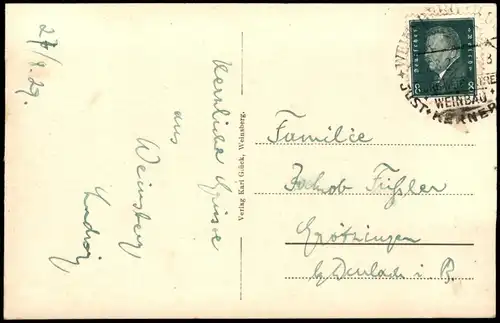 27/8.29.
Herzliche Grüsse
aus
Weinsberg
Ludwig
Verlag Karl Gück, Weinsberg.
Deutsches Reich
8 8
WEINSBERG
WEINBAU
JUST. KERNER
Familie
Jakob Füßler
Grötzingen
b/ Durlach i. B.